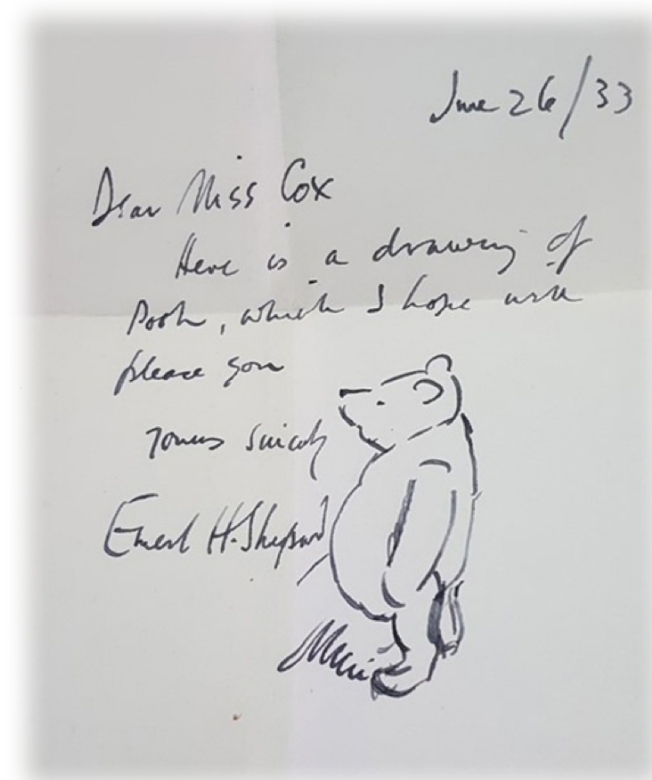 June 26/33
Dear Miss Cox
Here is a drawing of
Pooh, which I hope will
please you
Yours sincely
Ernest H. Shepard